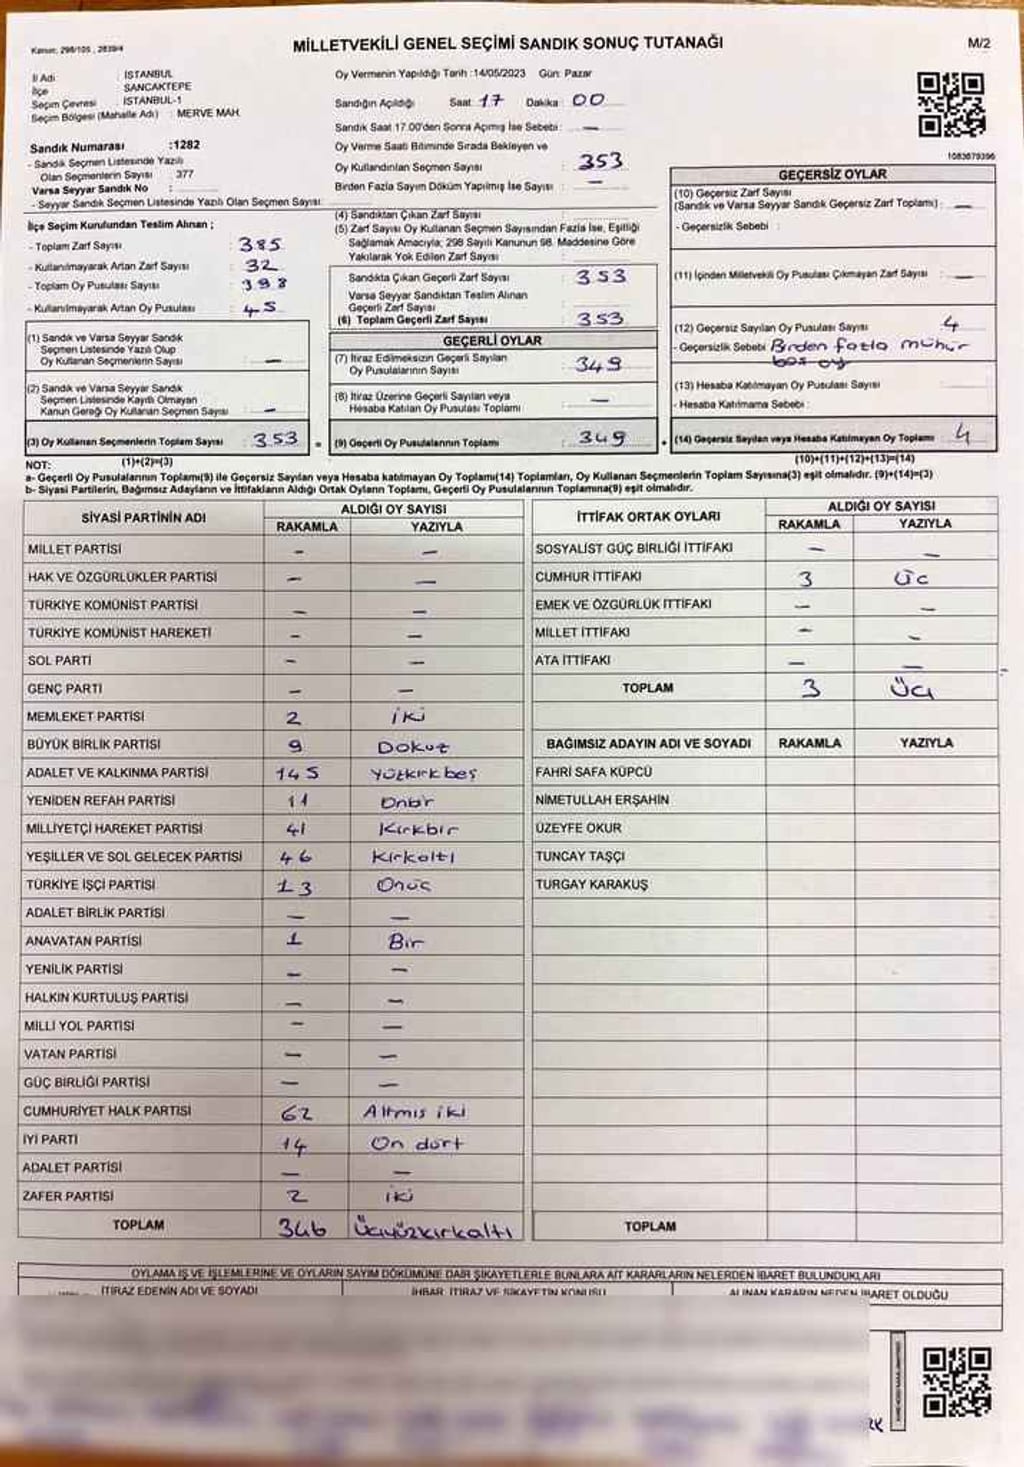 Kanun: 298/105 , 2839/4
MİLLETVEKİLİ GENEL SEÇİMİ SANDIK SONUÇ TUTANAĞI
M/2
İl Adı : İSTANBUL
İlçe : SANCAKTEPE
Seçim Çevresi : İSTANBUL-1
Seçim Bölgesi (Mahalle Adı) : MERVE MAH.
Sandık Numarası :1282
- Sandık Seçmen Listesinde Yazılı
Olan Seçmenlerin Sayısı 377
Varsa Seyyar Sandık No :
- Seyyar Sandık Seçmen Listesinde Yazılı Olan Seçmen Sayısı:
Oy Vermenin Yapıldığı Tarih :14/05/2023 Gün: Pazar
Sandığın Açıldığı Saat: 17 Dakika: 00
Sandık Saat 17.00'den Sonra Açmış İse Sebebi: —
Oy Verme Saati Bitiminde Sırada Bekleyen ve
Oy Kullandırılan Seçmen Sayısı : 353
Birden Fazla Sayım Döküm Yapılmış İse Sayısı : —
1083679396
İlçe Seçim Kurulundan Teslim Alınan ;
- Toplam Zarf Sayısı : 385
- Kullanılmayarak Artan Zarf Sayısı : 32
- Toplam Oy Pusulası Sayısı : 398
- Kullanılmayarak Artan Oy Pusulası : 45
(1) Sandık ve Varsa Seyyar Sandık
Seçmen Listesinde Yazılı Olup
Oy Kullanan Seçmenlerin Sayısı : —
(2) Sandık ve Varsa Seyyar Sandık
Seçmen Listesinde Kayıtlı Olmayan
Kanun Gereği Oy Kullanan Seçmen Sayısı : —
(3) Oy Kullanan Seçmenlerin Toplam Sayısı : 353
(4) Sandıktan Çıkan Zarf Sayısı
(5) Zarf Sayısı Oy Kullanan Seçmen Sayısından Fazla İse, Eşitliği
Sağlamak Amacıyla; 298 Sayılı Kanunun 98. Maddesine Göre
Yakılarak Yok Edilen Zarf Sayısı :
Sandıkta Çıkan Geçerli Zarf Sayısı : 353
Varsa Seyyar Sandıktan Teslim Alınan
Geçerli Zarf Sayısı :
(6) Toplam Geçerli Zarf Sayısı : 353
GEÇERLİ OYLAR
(7) İtiraz Edilmeksizin Geçerli Sayılan
Oy Pusulalarının Sayısı : 349
(8) İtiraz Üzerine Geçerli Sayılan veya
Hesaba Katılan Oy Pusulası Toplamı : —
= (9) Geçerli Oy Pusulalarının Toplamı : 349
GEÇERSİZ OYLAR
(10) Geçersiz Zarf Sayısı
(Sandık ve Varsa Seyyar Sandık Geçersiz Zarf Toplamı) : —
- Geçersizlik Sebebi :
(11) İçinden Milletvekili Oy Pusulası Çıkmayan Zarf Sayısı : —
(12) Geçersiz Sayılan Oy Pusulası Sayısı : 4
- Geçersizlik Sebebi : Birden fazla mühür
boş oy
(13) Hesaba Katılmayan Oy Pusulası Sayısı :
- Hesaba Katılmama Sebebi :
(14) Geçersiz Sayılan veya Hesaba Katılmayan Oy Toplamı : 4
NOT: (1)+(2)=(3)
(10)+(11)+(12)+(13)=(14)
a- Geçerli Oy Pusulalarının Toplamı(9) ile Geçersiz Sayılan veya Hesaba katılmayan Oy Toplamı(14) Toplamları, Oy Kullanan Seçmenlerin Toplam Sayısına(3) eşit olmalıdır. (9)+(14)=(3)
b- Siyasi Partilerin, Bağımsız Adayların ve İttifakların Aldığı Ortak Oyların Toplamı, Geçerli Oy Pusulalarının Toplamına(9) eşit olmalıdır.
SİYASİ PARTİNİN ADI ALDIĞI OY SAYISI
RAKAMLA YAZIYLA
MİLLET PARTİSİ — —
HAK VE ÖZGÜRLÜKLER PARTİSİ — —
TÜRKİYE KOMÜNİST PARTİSİ — —
TÜRKİYE KOMÜNİST HAREKETİ — —
SOL PARTİ — —
GENÇ PARTİ — —
MEMLEKET PARTİSİ 2 iki
BÜYÜK BİRLİK PARTİSİ 9 Dokuz
ADALET VE KALKINMA PARTİSİ 145 Yüzkırkbeş
YENİDEN REFAH PARTİSİ 11 Onbir
MİLLİYETÇİ HAREKET PARTİSİ 41 Kırkbir
YEŞİLLER VE SOL GELECEK PARTİSİ 46 Kırkaltı
TÜRKİYE İŞÇİ PARTİSİ 13 Onüç
ADALET BİRLİK PARTİSİ — —
ANAVATAN PARTİSİ 1 Bir
YENİLİK PARTİSİ — —
HALKIN KURTULUŞ PARTİSİ — —
MİLLİ YOL PARTİSİ — —
VATAN PARTİSİ — —
GÜÇ BİRLİĞİ PARTİSİ — —
CUMHURİYET HALK PARTİSİ 62 Altmış iki
İYİ PARTİ 14 On dört
ADALET PARTİSİ — —
ZAFER PARTİSİ 2 iki
TOPLAM 346 Üçyüzkırkaltı
İTTİFAK ORTAK OYLARI ALDIĞI OY SAYISI
RAKAMLA YAZIYLA
SOSYALİST GÜÇ BİRLİĞİ İTTİFAKI — —
CUMHUR İTTİFAKI 3 Üç
EMEK VE ÖZGÜRLÜK İTTİFAKI — —
MİLLET İTTİFAKI — —
ATA İTTİFAKI — —
TOPLAM 3 Üç
BAĞIMSIZ ADAYIN ADI VE SOYADI RAKAMLA YAZIYLA
FAHRİ SAFA KÜPCÜ
NİMETULLAH ERŞAHİN
ÜZEYFE OKUR
TUNCAY TAŞÇI
TURGAY KARAKUŞ
TOPLAM
OYLAMA İŞ VE İŞLEMLERİNE VE OYLARIN SAYIM DÖKÜMÜNE DAİR ŞİKAYETLERLE BUNLARA AİT KARARLARIN NELERDEN İBARET BULUNDUKLARI
İTİRAZ EDENİN ADI VE SOYADI İHBAR, İTİRAZ VE ŞİKAYETİN KONUSU ALINAN KARARIN NEDEN İBARET OLDUĞU